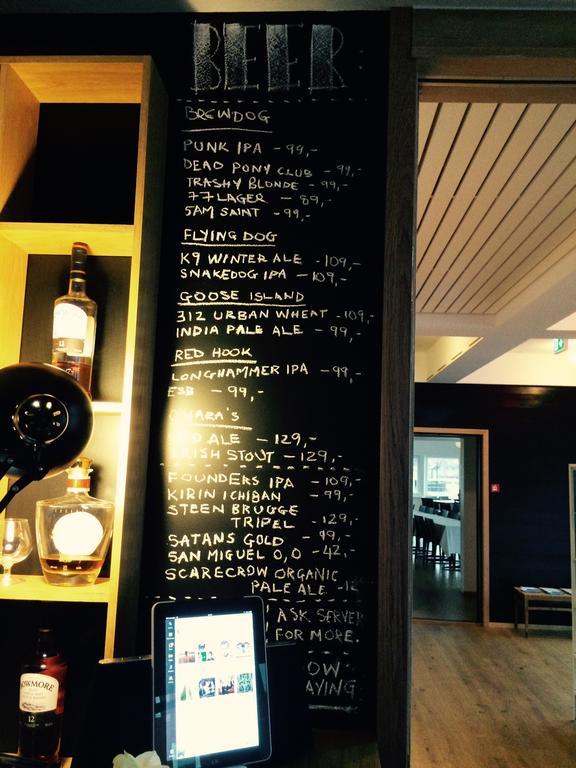 BEER
BREWDOG
PUNK IPA - 99,-
DEAD PONY CLUB - 99,-
TRASHY BLONDE - 99,-
77 LAGER - 89,-
5AM SAINT - 99,-
FLYING DOG
K9 WINTER ALE - 109,-
SNAKEDOG IPA - 109,-
GOOSE ISLAND
312 URBAN WHEAT - 109,-
INDIA PALE ALE - 99,-
RED HOOK
LONGHAMMER IPA - 99,-
ESB - 99,-
O'HARA'S
ALE - 129,-
STOUT - 129,-
FOUNDERS IPA - 109,-
KIRIN ICHIBAN - 99,-
STEEN BRUGGE
TRIPEL - 129,-
SATANS GOLD - 99,-
SAN MIGUEL 0,0 - 42,-
SCARECROW ORGANIC
PALE ALE - 12
ASK SERVER
FOR MORE.
OW
AYING
BOWMORE
12